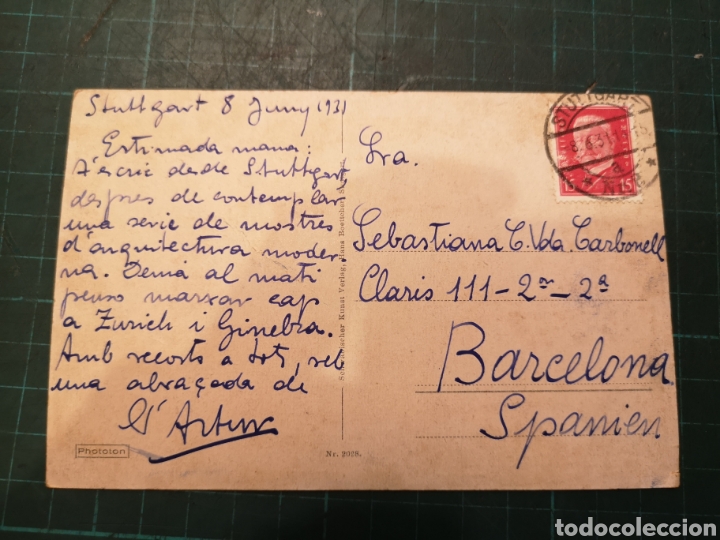 Stuttgart 8 Juny 1931
Estimada mama:
T'escric desde Stuttgart
despres de contemplar
una serie de mostres
d'arquitectura moder
na. Demá al matí
penso marxar cap
a Zurich i Ginebra.
Amb records a tots, reb
una abraçada de
L'Artur
Phototon
Nr. 2028.
Kunst Verlag, Hans Boettcher
STUTTGART
8.6.31
15 15
Sra.
Sebastiana C. Vda. Carbonell
Claris 111-2ⁿ-2ª
Barcelona
Spanien
todocoleccion